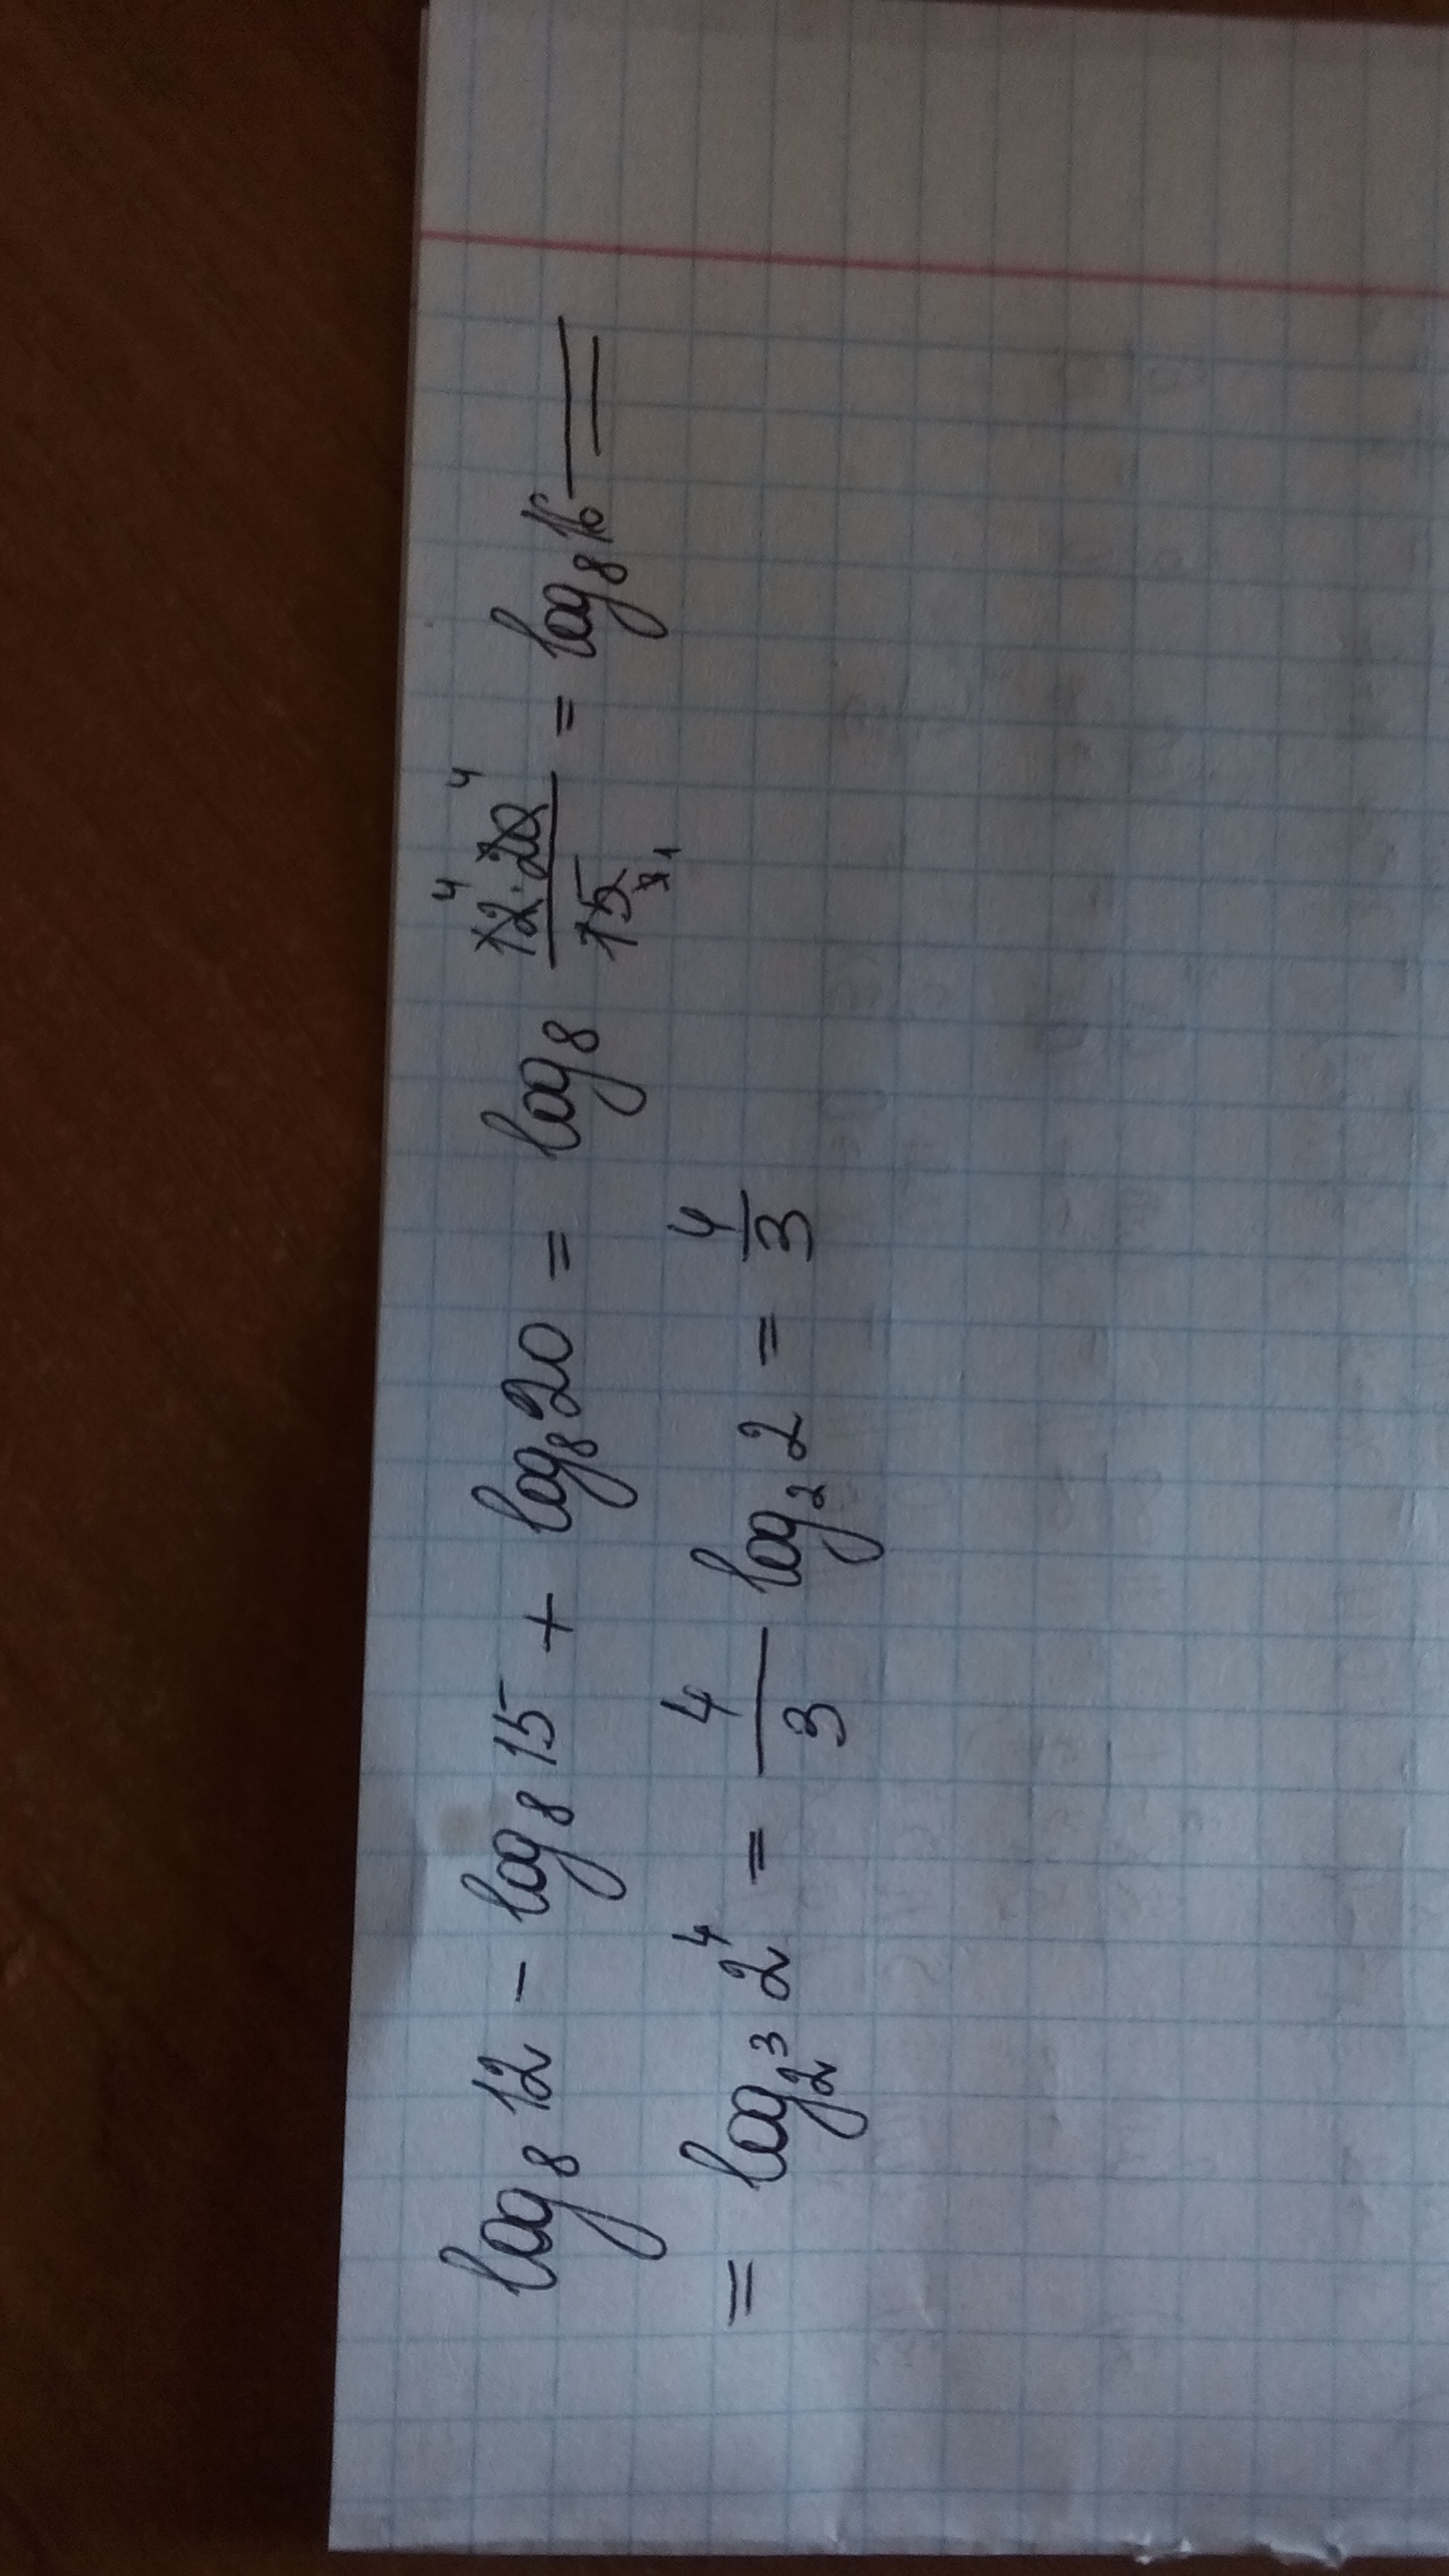 log₈ 12 − log₈ 15 + log₈ 20 = log₈ (12⁴ · 20⁴)/(15 3 1) = log₈ 16 =
= log_{2³} 2⁴ = 4/3 log₂ 2 = 4/3